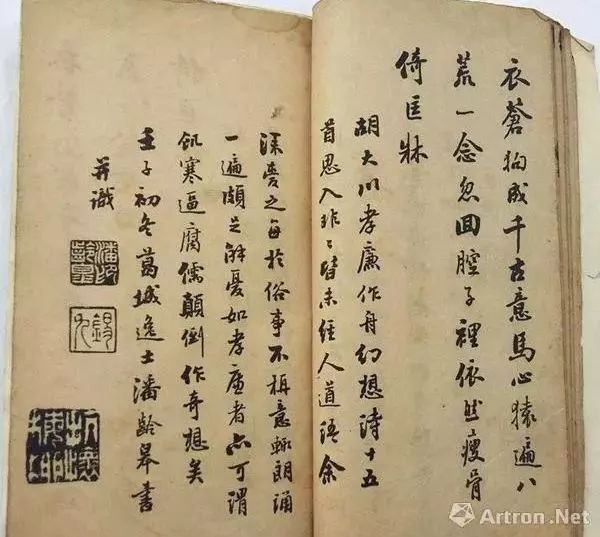 衣蒼狗成千古意馬心猿遍八
荒一念忽回腔子裡依然瘦骨
倚匡牀
胡大川孝廉作舟幻想詩十五
首思入非々皆未經人道語余
深愛之每於俗事不稱意輒朗誦
一遍頗足解憂如孝廉者亦可謂
飢寒逼腐儒顛倒作奇想矣
壬子初冬葛城逸士潘齡皋書
并識
潘印齡皋
錫九
Artron.Net